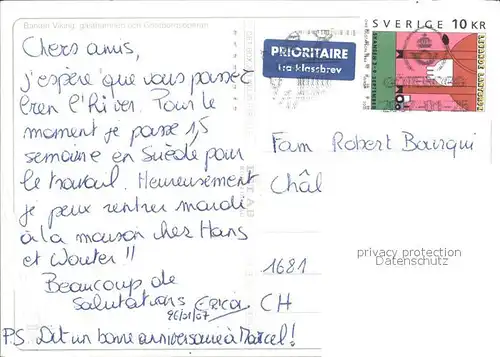 Chers amis,
j'espère que vous passez
bien l'hiver. Pour le
moment je passe 1,5
semaine en Suède pour
le travail. Heureusement
je peux rentrer mardi
à la maison chez Hans
et Wouter !!
Beaucoup de
salutations Erica
26/01/07
P.S. Dit un bonne anniversaire à Marcel!
PRIORITAIRE
1:a klassbrev
SVERIGE 10 KR
GÖTEBORG
Fam Robert Bourqui
Châl
privacy protection
Datenschutz
1681
CH